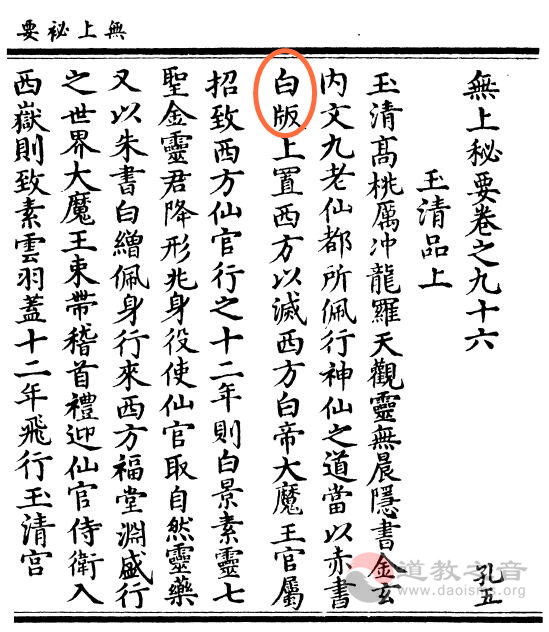 無上秘要
無上秘要卷之九十六 孔五
玉清品上
玉清高桃厲冲龍羅天觀靈無晨隱書金玄
内文九老仙都所佩行神仙之道當以赤書
白版上置西方以滅西方白帝大魔王官屬
招致西方仙官行之十二年則白景素靈七
聖金靈君降形兆身役使仙官取自然靈藥
又以朱書白繒佩身行來西方福堂淵盛行
之世界大魔王束帶稽首禮迎仙官侍衛入
西嶽則致素雲羽蓋十二年飛行玉清宫
道教之音
www.daoisms.org